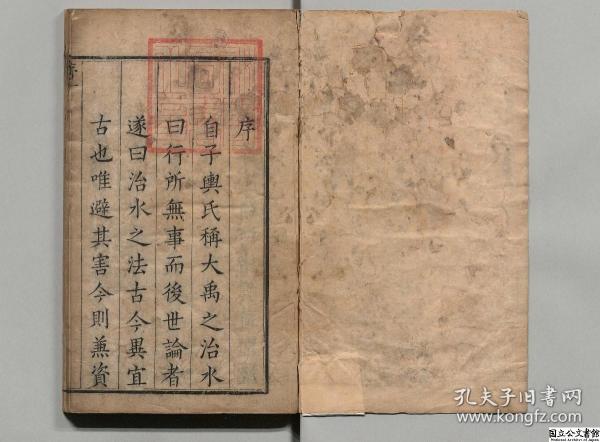 序
自子輿氏稱大禹之治水
曰行所無事而後世論者
遂曰治水之法古今異宜
古也唯避其害今則兼資
序
孔夫子旧书网
www.kongfz.com
国立公文書館
National Archives of Japan